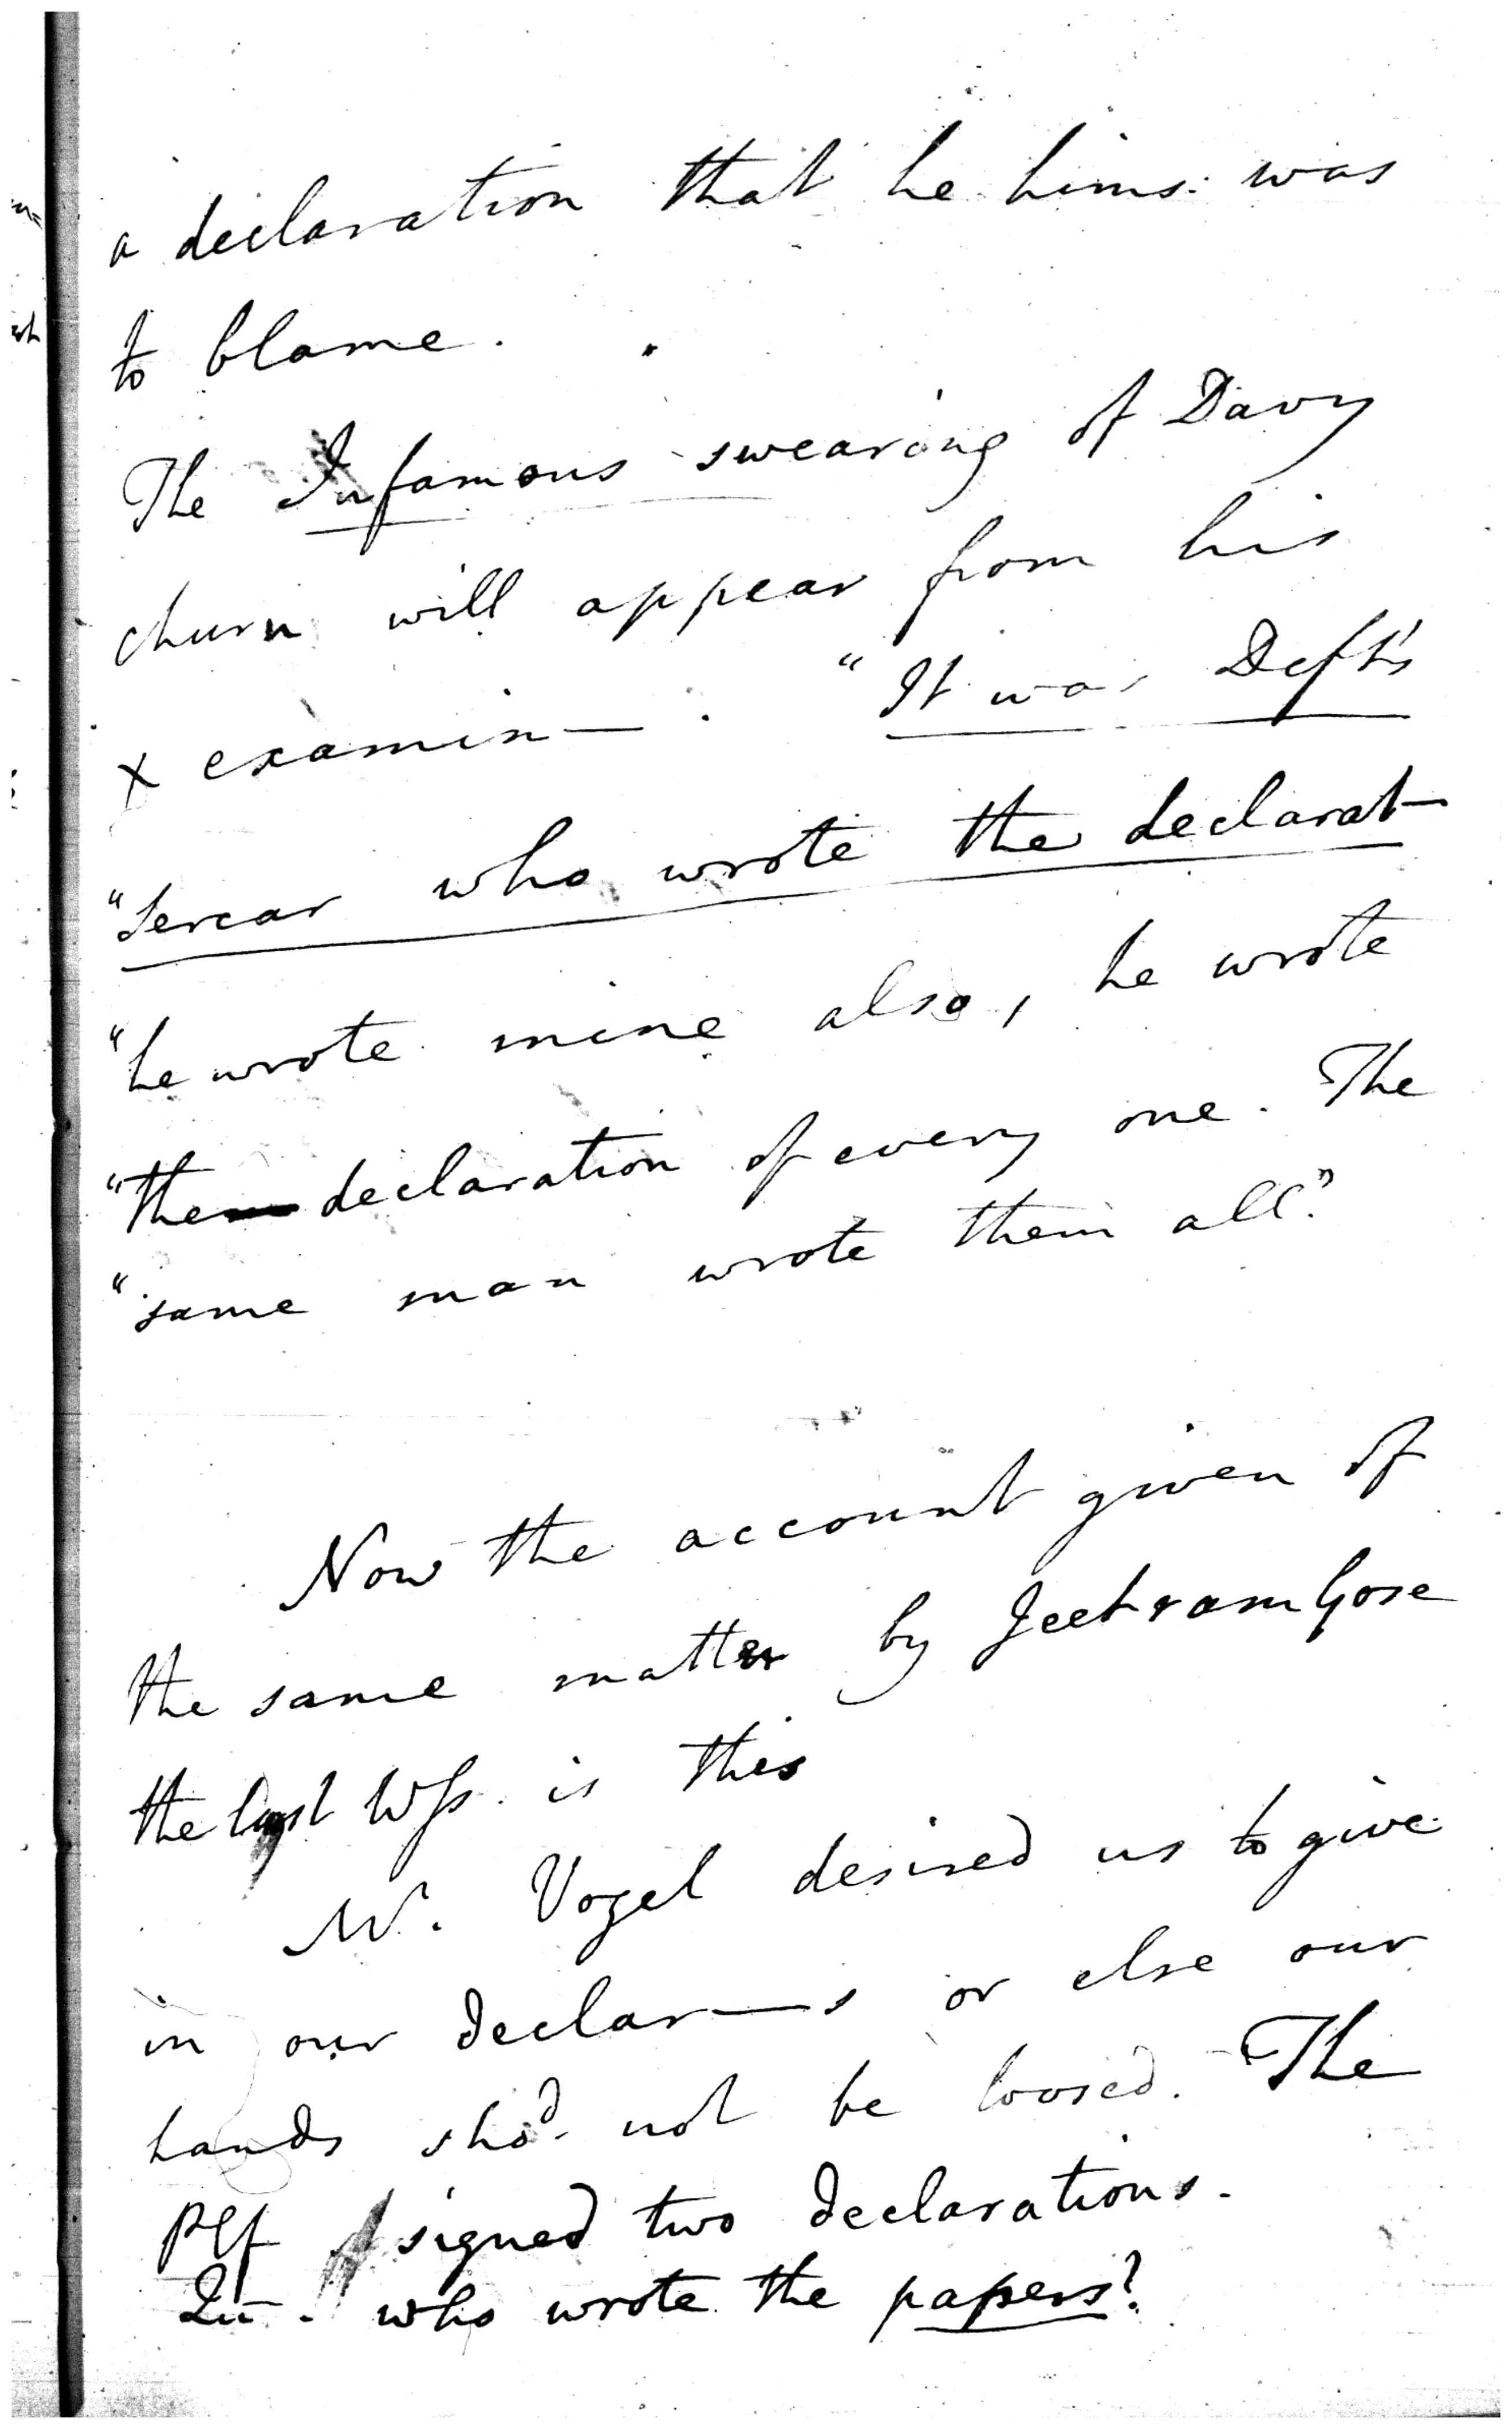 a declaration that he hims: was
to blame.
The Infamous swearing of Davy
churn will appear from his
x examin— . "It was Deft's
"Sercar who wrote the declarat—
"he wrote mine also, he wrote
"the declaration of every one. The
"same man wrote them all."
Now the account given of
the same matter by Jeetram Gose
the last Wss. is this
Mr. Vogel desired us to give
in our declar—s or else our
hands shod. not be loosed. The
Plf signed two declarations.
Qu—. who wrote the papers?